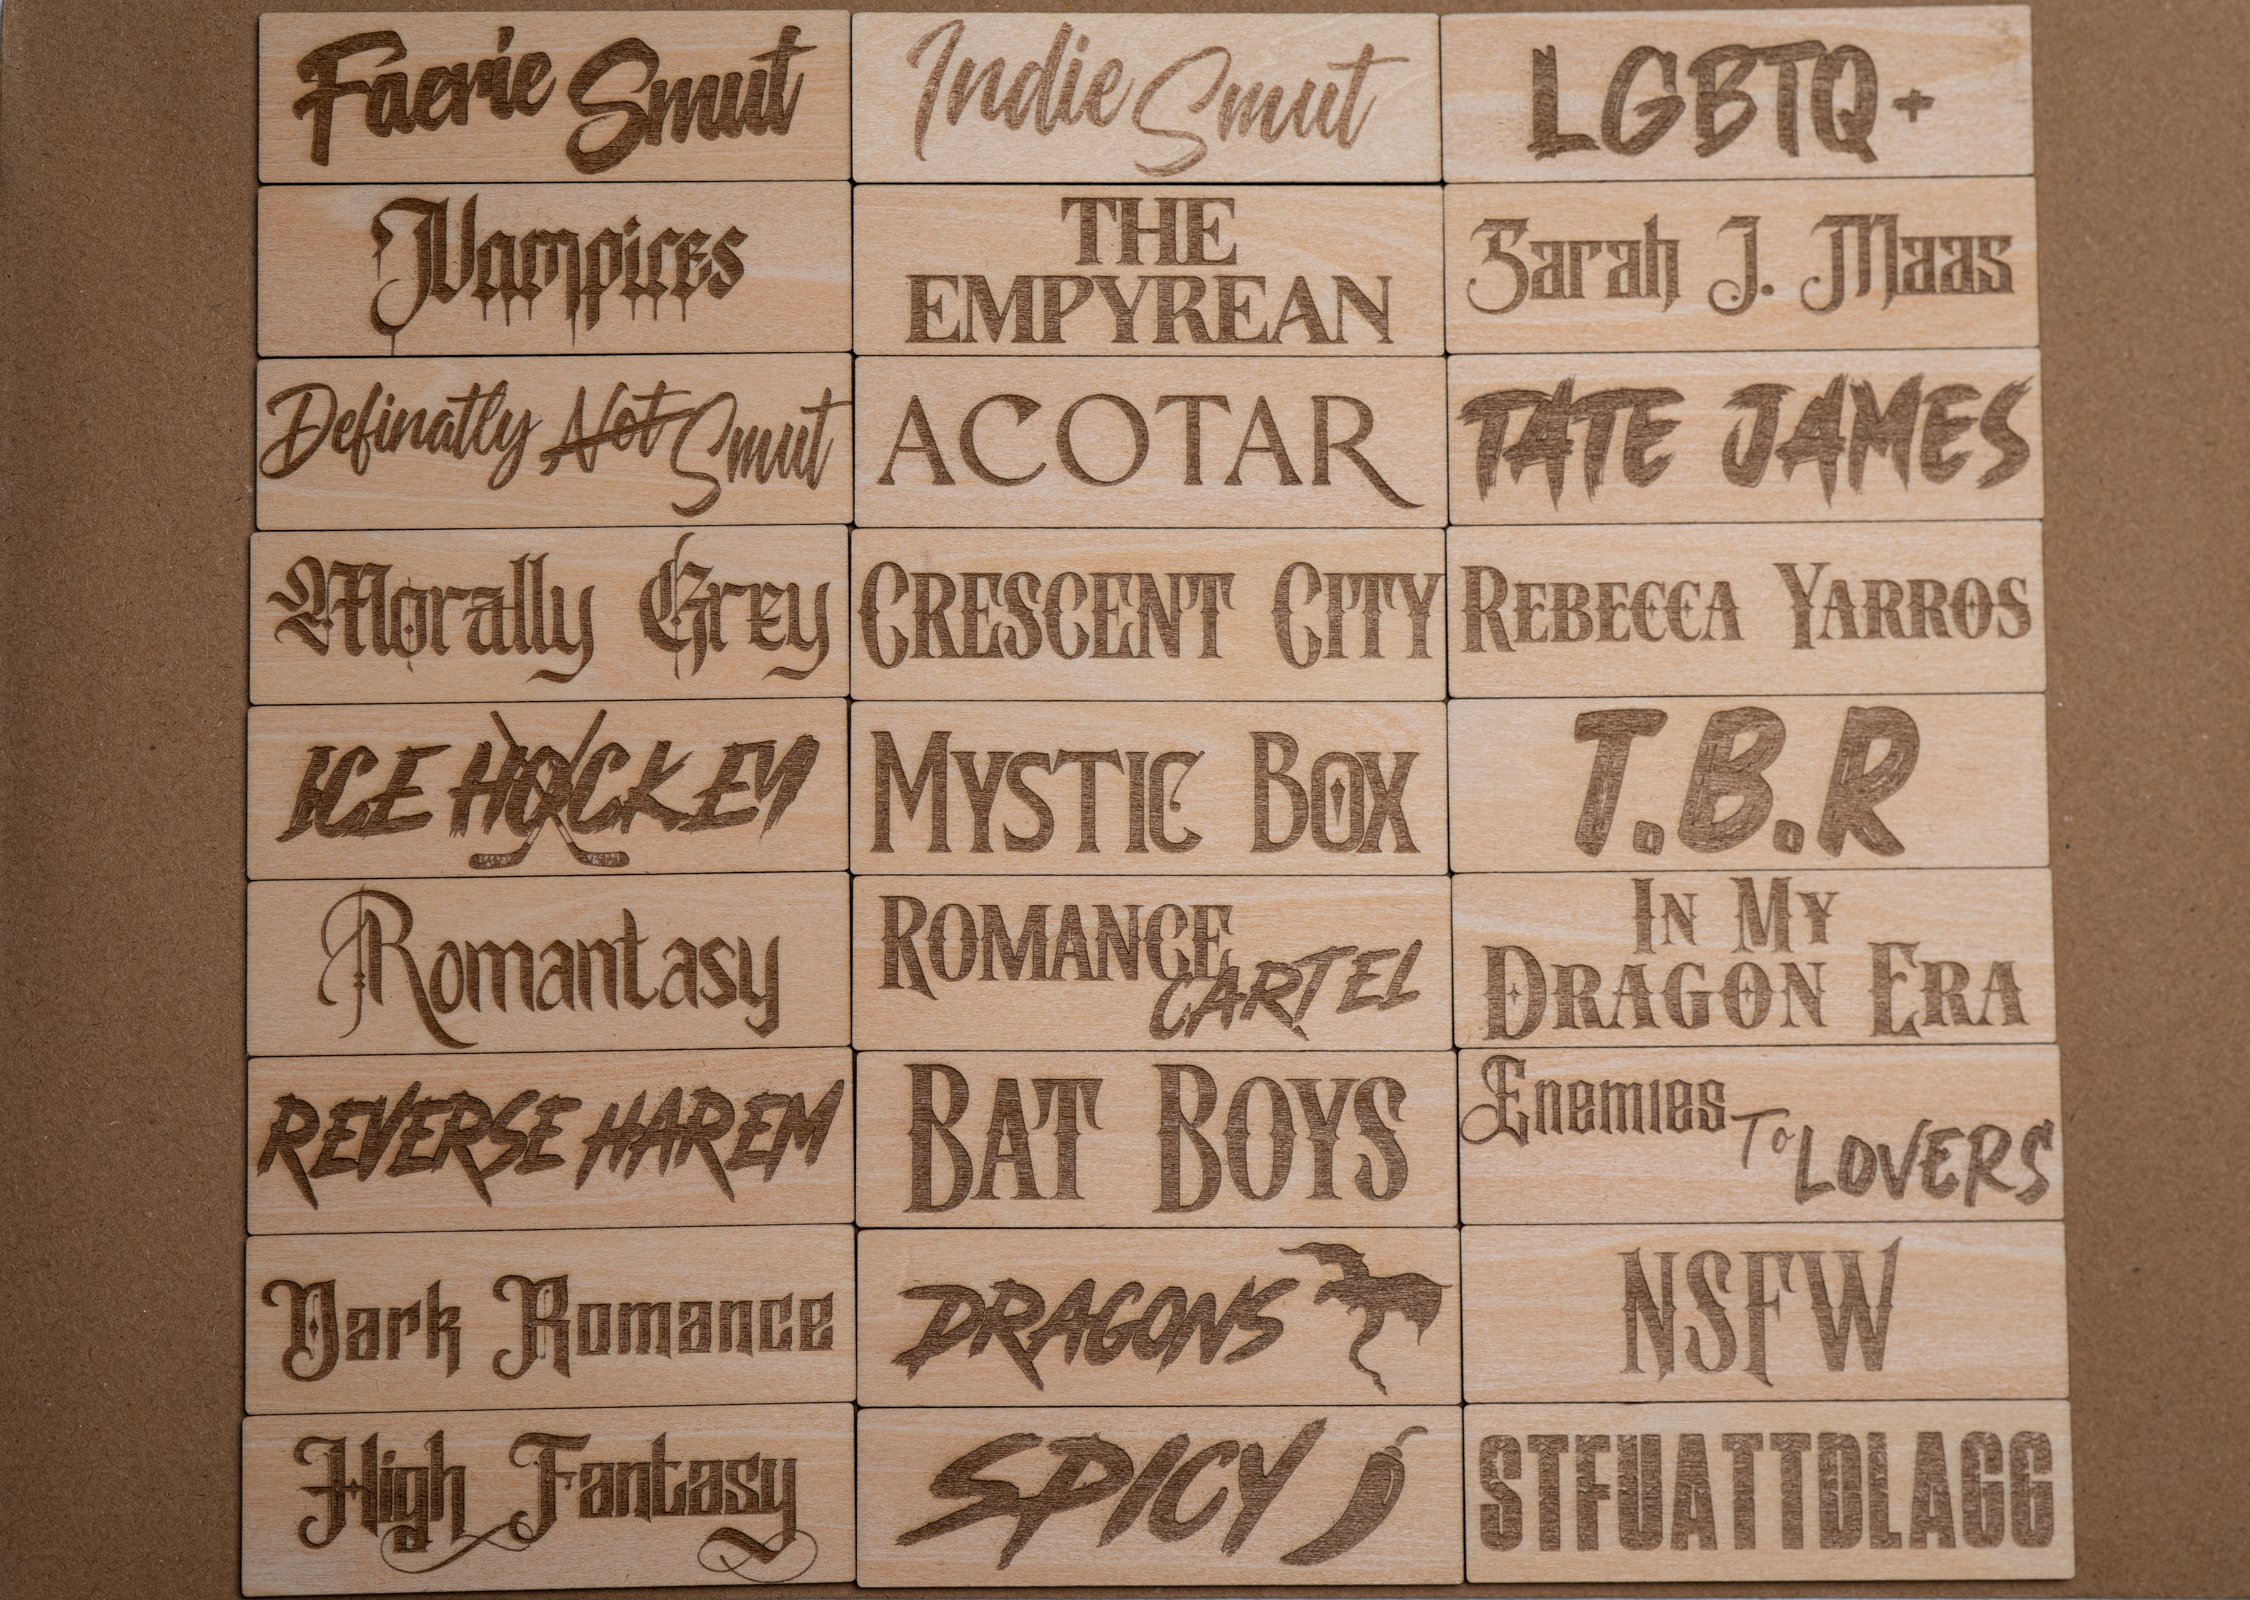 Faerie Smut
Indie Smut
LGBTQ+
Vampires
THE
EMPYREAN
Sarah J. Maas
Definatly Not Smut
ACOTAR
TATE JAMES
Morally Grey
CRESCENT CITY
REBECCA YARROS
ICE HOCKEY
MYSTIC BOX
T.B.R
Romantasy
ROMANCE
CARTEL
IN MY
DRAGON ERA
REVERSE HAREM
BAT BOYS
Enemies
To
LOVERS
Dark Romance
DRAGONS
NSFW
High Fantasy
SPICY
STFUATTDLAGG